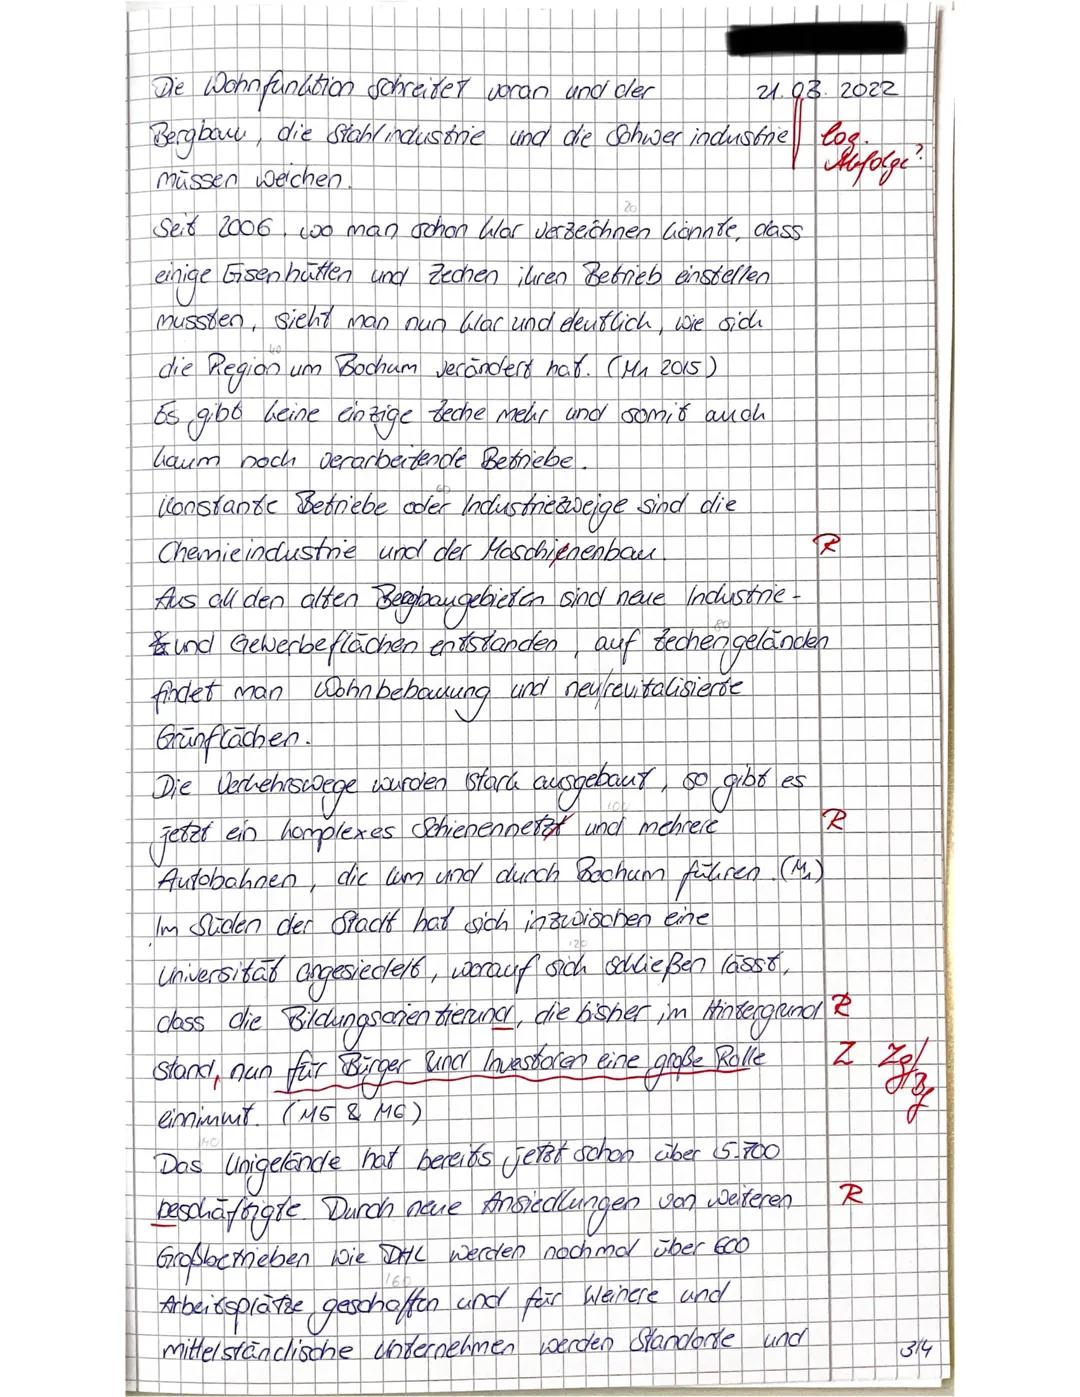 Die Wohnfunktion schreitet voran und der 21.03.2022
Bergbau, die Stahlindustrie und die Schwerindustrie log.
Abfolge?
müssen weichen.
20
Seit 2006, wo man schon klar verzeichnen konnte, dass
einige Eisenhütten und Zechen ihren Betrieb einstellen
mussten, sieht man nun klar und deutlich, wie sich
40
die Region um Bochum verändert hat. (M1 2015)
Es gibt keine einzige Zeche mehr und somit auch
kaum noch verarbeitende Betriebe.
60
Konstante Betriebe oder Industriezweige sind die
Chemieindustrie und der Maschienenbau. R
Aus all den alten Bergbaugebieten sind neue Industrie-
80
& und Gewerbeflächen entstanden, auf Zechengeländen
findet man Wohnbebauung und neu revitalisierte
Grünflächen.
Die Verkehrswege wurden stark ausgebaut, so gibt es
100
jetzt ein komplexes Schienennetzt und mehrere R
Autobahnen, die um und durch Bochum führen. (M1)
Im Süden der Stadt hat sich inzwischen eine
120
Universität angesiedelt, worauf sich schließen lässt,
dass die Bildungsorientierung, die bisher im Hintergrund R
stand, nun für Bürger und Investoren eine große Rolle Z Zg/
Bf
einnimmt. (M5 & M6)
140
Das Unigelände hat bereits jetzt schon über 5.700
beschäftigte. Durch neue Ansiedlungen von weiteren R
Großbetrieben wie DHL werden nochmal über 600
160
Arbeitsplätze geschaffen und für kleinere und
mittelständische Unternehmen werden Standorte und 3/4